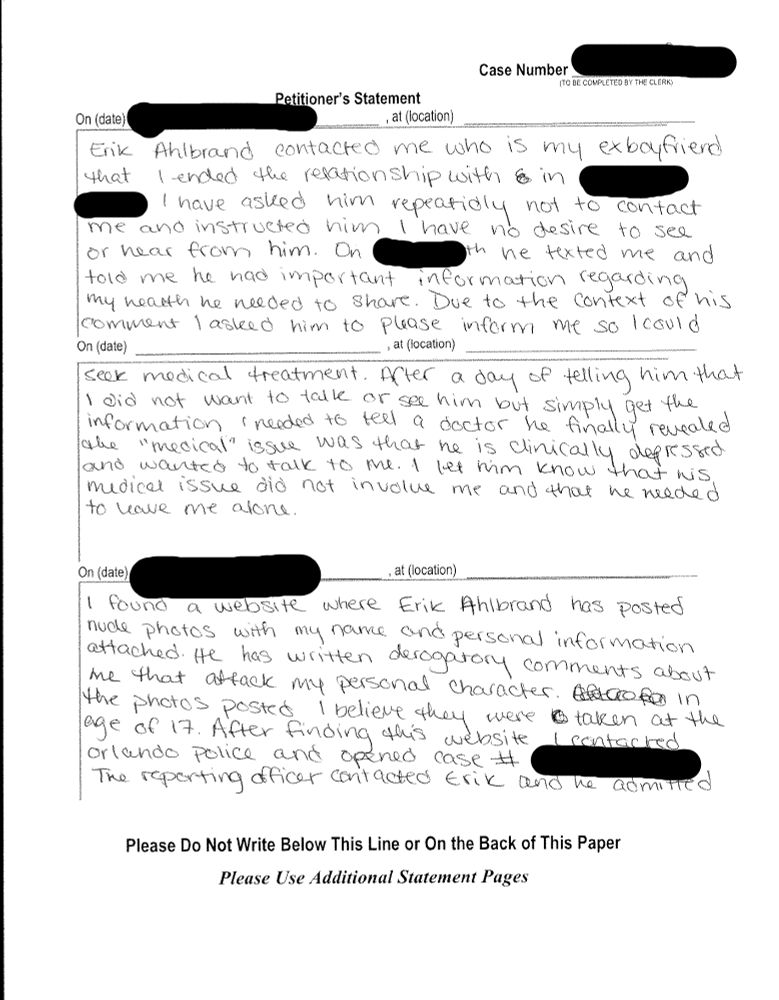 Case Number
(TO BE COMPLETED BY THE CLERK)
Petitioner's Statement
On (date) , at (location)
Erik Ahlbrand contacted me who is my exboyfriend
that I ended the relationship with in
I have asked him repeatidly not to contact
me and instructed him I have no desire to see
or hear from him. On th he texted me and
told me he had important information regarding
my health he needed to share. Due to the context of his
comment I asked him to please inform me so I could
On (date) , at (location)
seek medical treatment. After a day of telling him that
I did not want to talk or see him but simply get the
information I needed to tell a doctor he finally revealed
the "medical" issue was that he is clinically depressed
and wanted to talk to me. I let him know that his
medical issue did not involve me and that he needed
to leave me alone.
On (date) , at (location)
I found a website where Erik Ahlbrand has posted
nude photos with my name and personal information
attached. He has written derogatory comments about
me that attack my personal character. in
the photos posted I believe they were taken at the
age of 17. After finding this website I contacted
orlando police and opened case #
The reporting officer contacted Erik and he admitted
Please Do Not Write Below This Line or On the Back of This Paper
Please Use Additional Statement Pages